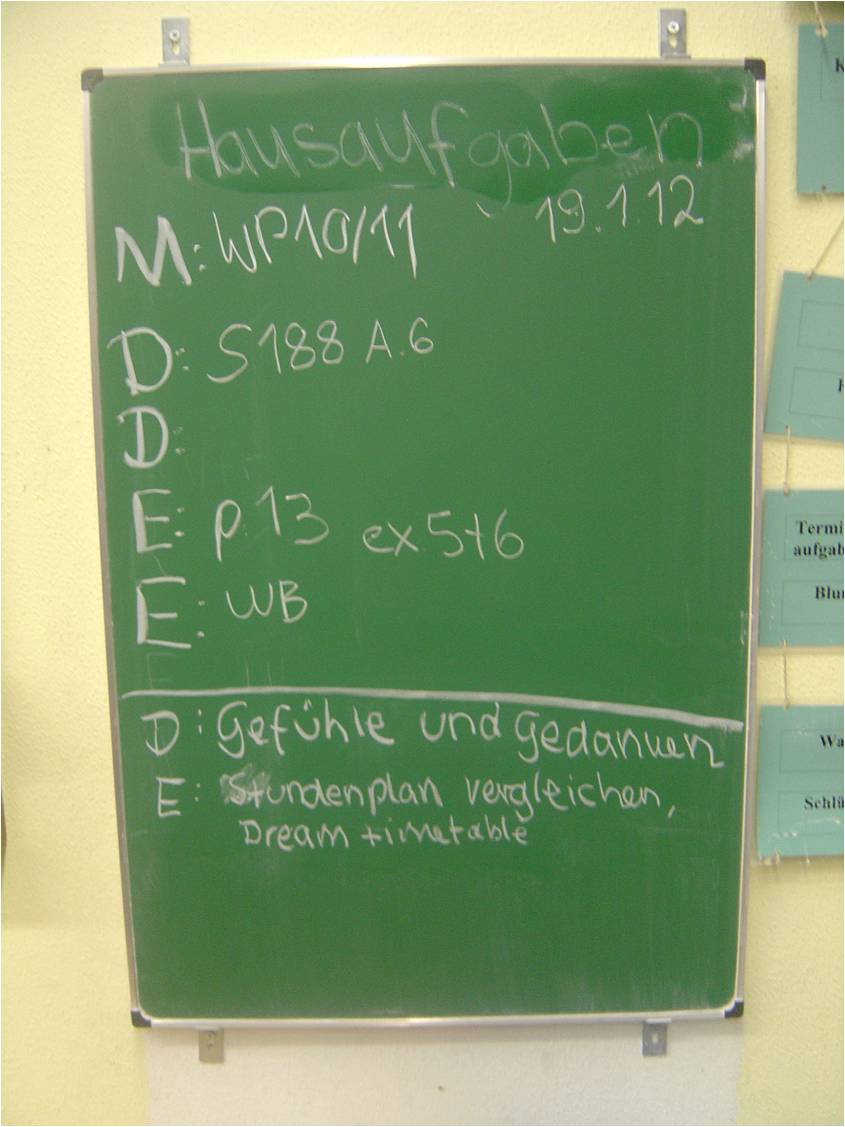 Hausaufgaben
19.1.12
M: WP10/11
D: S188 A.6
D:
E: p.13 ex.5+6
E: WB
D: Gefühle und Gedanken
E: Stundenplan vergleichen,
Dream timetable
K
Termi
aufgab
Blu
Wa
Schlü